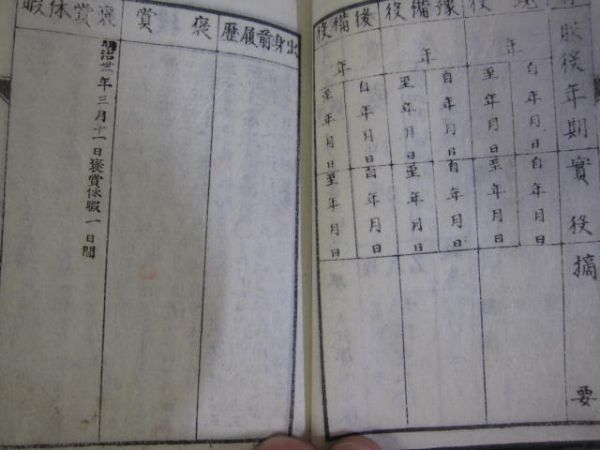 服役年期
實役
摘要
現役
年
自年月日
至年月日
自年月日
至年月日
豫備役
年
自年月日
至年月日
自年月日
至年月日
後備役
年
自年月日
至年月日
自年月日
至年月日
出身前履歴
褒賞
褒賞休暇
明治世一年三月十一日褒賞休暇一日間